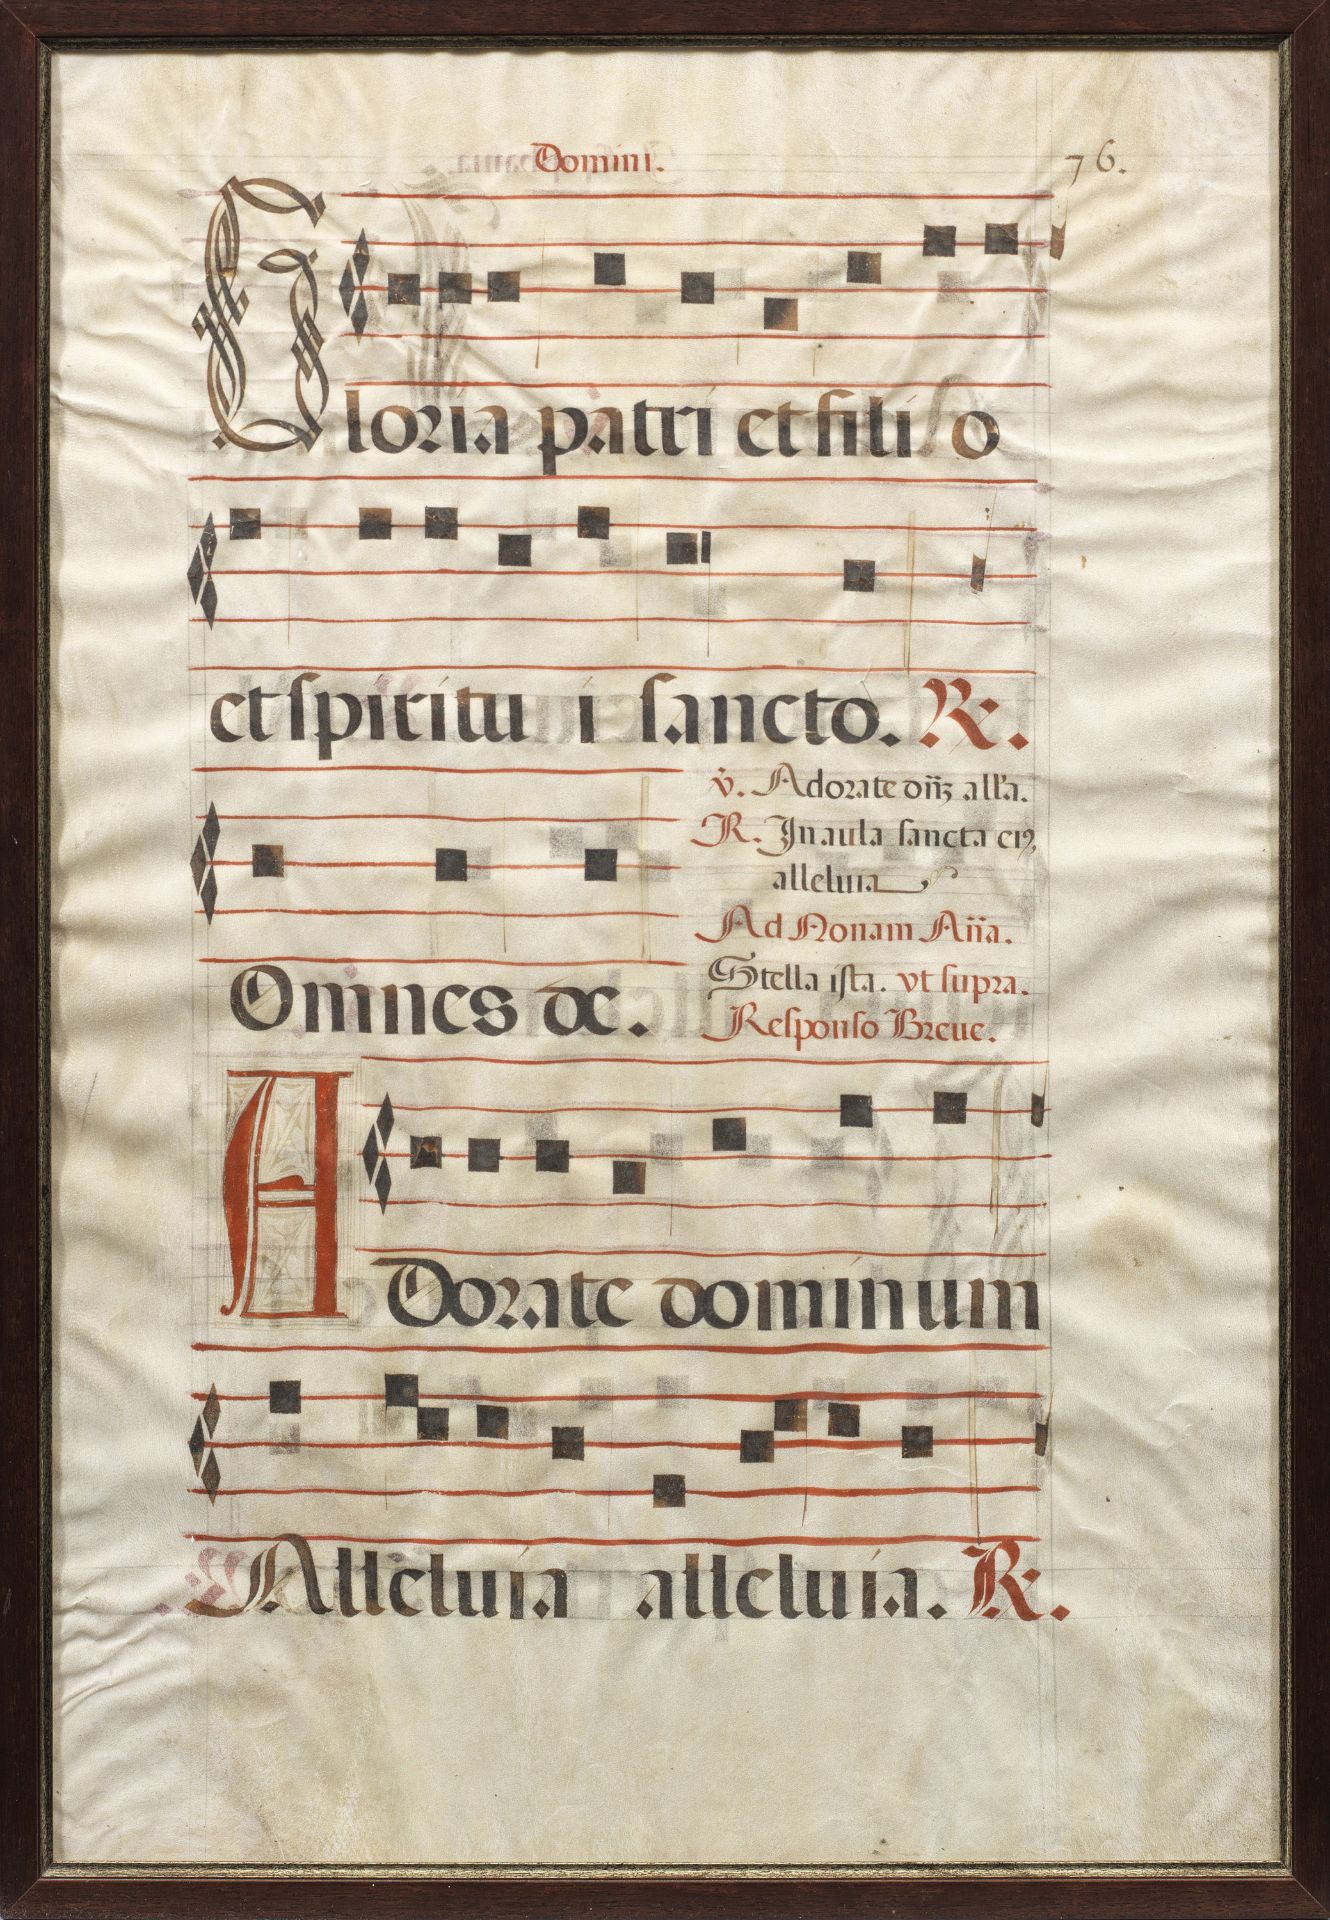 Domini.
76.
Gloria patri et fili o
et spiritu i sancto. ℟.
v̇. Adorate dn̄ȝ all'a.
R. In aula sancta eiꝰ
alleluia
Omnes de.
Ad Nonam An̄a.
Stella ista. vt supra.
Responso Breue.
ADorate dominum
Alleluia alleluia. ℟.